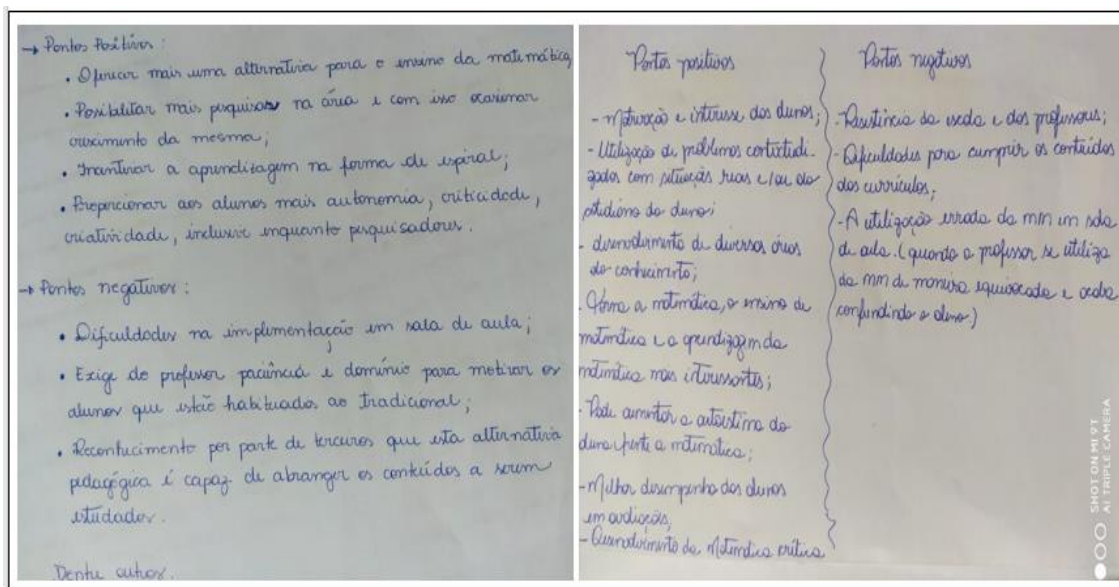 → Pontos Positivos:
• Oferecer mais uma alternativa para o ensino da matemática;
• Possibilitar mais pesquisas na área e com isso ocasionar
crescimento da mesma;
• a aprendizagem na forma de espiral;
• Proporcionar aos alunos mais autonomia, criticidade,
criatividade, inclusive enquanto pesquisadores.
→ Pontos negativos:
• Dificuldades na implementação em sala de aula;
• Exige do professor paciência e domínio para motivar os
alunos que estão habituados ao tradicional;
• Reconhecimento por parte de terceiros que esta alternativa
pedagógica é capaz de abranger os conteúdos a serem
estudados.
Dentre outros.
Pontos positivos
- Motivação e interesse dos alunos;
- Utilização de problemas contextuali-
zados com situação reais e/ou do
cotidiano do aluno;
- desenvolvimento de diversas áreas
do conhecimento;
- Torna a matemática, o ensino de
matemática e a aprendizagem da
matemática mais interessantes;
- Pode aumentar a autoestima do
aluno frente a matemática;
- Melhor desempenho dos alunos
em avaliações;
- Desenvolvimento da Matemática crítica
Pontos negativos
- Resistência da escola e dos professores;
- Dificuldades para cumprir os conteúdos
dos currículos;
- A utilização errada da mm em sala
de aula. (quando o professor se utiliza
da mm de maneira equivocada e acaba
confundindo o aluno)
SHOT ON MI 9T
AI TRIPLE CAMERA